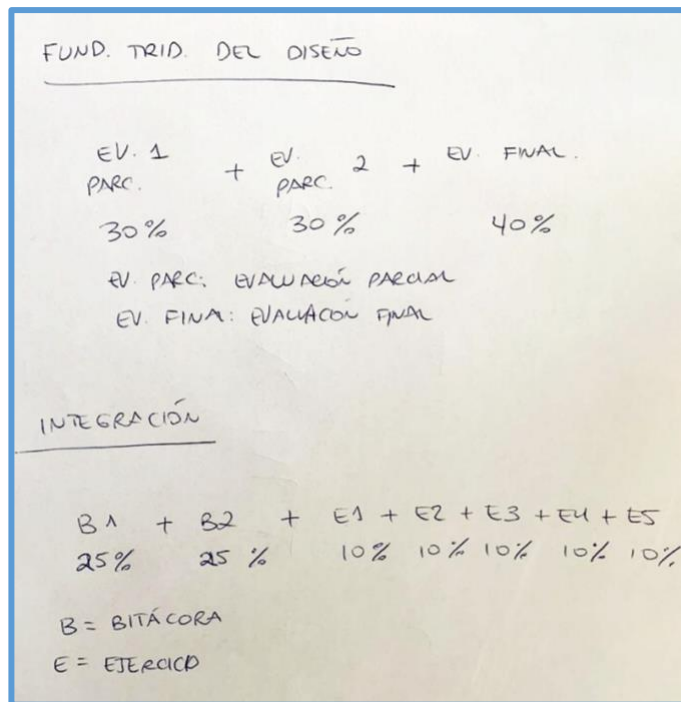 FUND. TRID. DEL DISEÑO
EV. 1 PARC. + EV. PARC. 2 + EV. FINAL.
30% 30% 40%
EV. PARC: EVALUACIÓN PARCIAL
EV. FINAL: EVALUACIÓN FINAL
INTEGRACIÓN
B1 + B2 + E1 + E2 + E3 + E4 + E5
25% 25% 10% 10% 10% 10% 10%
B = BITÁCORA
E = EJERCICIO